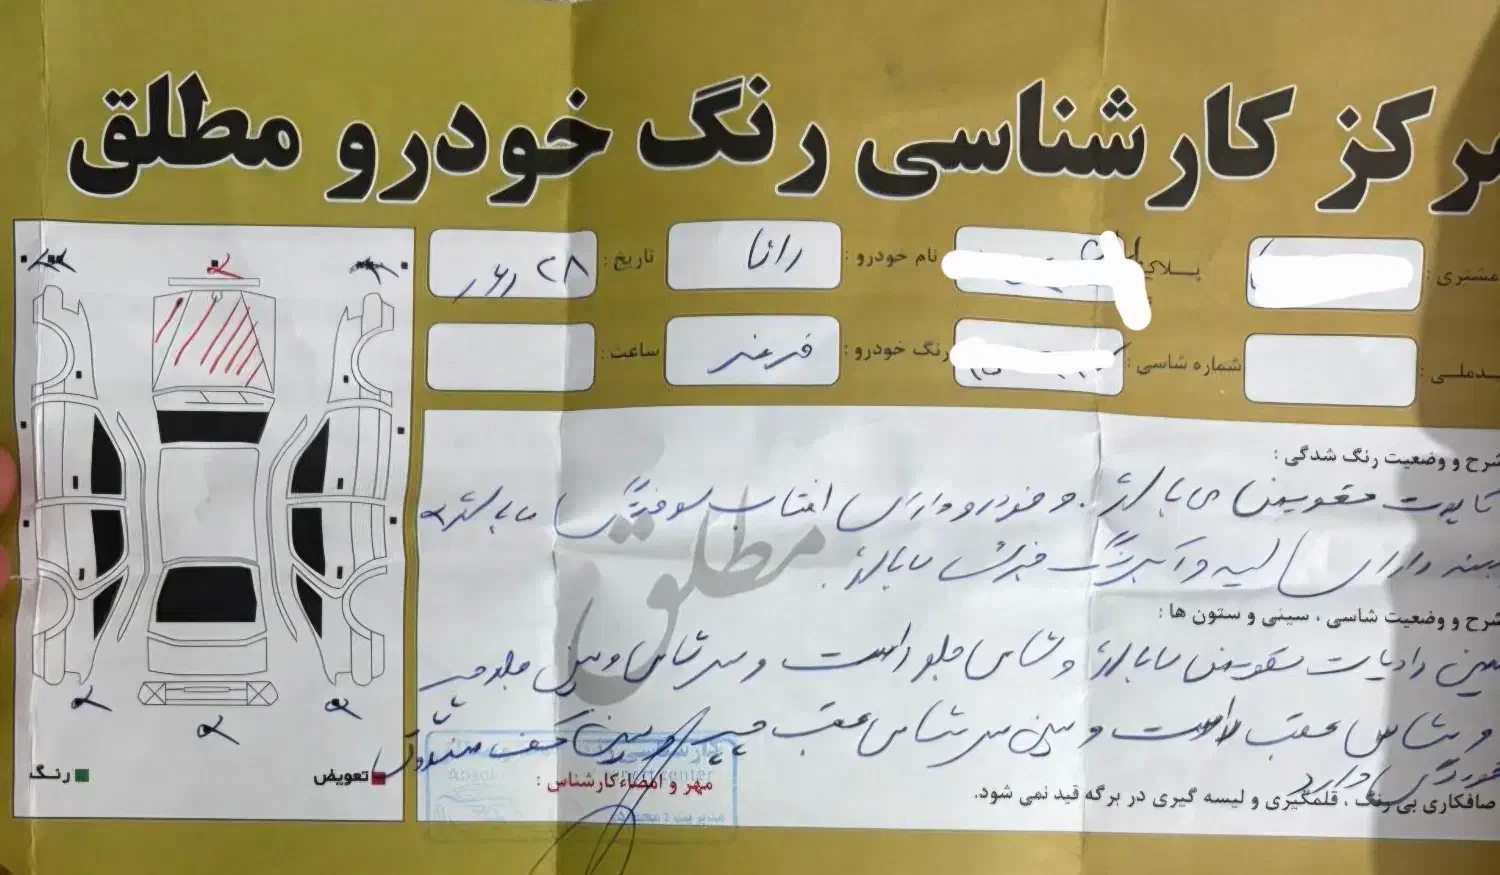 مرکز کارشناسی رنگ خودرو مطلق
مشتری :
پلاک
نام خودرو : رانا
تاریخ : ۲۸
کدملی :
شماره شاسی :
رنگ خودرو : قرمز
ساعت :
شرح و وضعیت رنگ شدگی :
کاپوت تعویض می باشد . و خودرو دارای افتاب سوختگی می باشد
بدنه دارای لیسه و آبرنگ می باشد .
مطلق
شرح و وضعیت شاسی ، سینی و ستون ها :
سینی رادیات تعویض می باشد و شاسی جلو راست و سر شاسی و سینی جلو چپ
و شاسی عقب راست و سینی سر شاسی عقب چپ و سینی کف صندوق
خوردگی دارد
صافکاری بی رنگ ، قلمگیری و لیسه گیری در برگه قید نمی شود.
مهر و امضاء کارشناس :
تعویض
رنگ